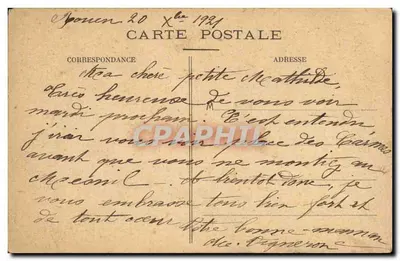 Rouen 20 Xbre 1921
CARTE POSTALE
CORRESPONDANCE
ADRESSE
Ma chère petite Mathilde,
Très heureuse de vous voir
mardi prochain. C'est entendu
j'irai vous voir place des Carmes
avant que vous ne montiez au
Mesnil - A bientôt donc, je
vous embrasse tous bien fort et
de tout cœur Votre bonne-maman
CPARPHIL